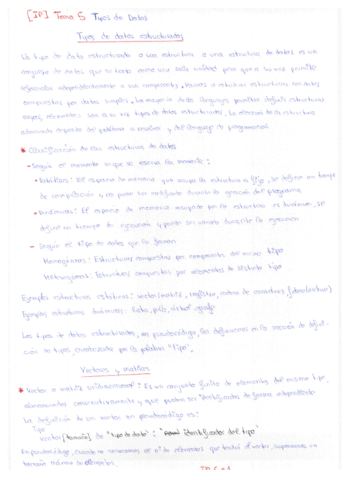 [IP] Tema 5 Tipos de Datos
Tipos de datos estructurados
Un tipo de dato estructurado o una estructura o una estructura de datos es un
conjunto de datos que se tratan como una sola unidad pero que a la vez permite
referenciar independientemente a sus componentes. Vamos a estudiar estructuras con datos
compuestos por datos simples. La mayoría de los lenguajes permiten definir estructuras
el tipo de datos estructurados. La elección de la estructura
adecuada depende del problema a resolver y del lenguaje de programación
* Clasificación de las estructuras de datos
- Según el momento en que se reserva la memoria:
• Estáticas: El espacio de memoria que ocupa la estructura es fijo, se define en tiempo
de compilación y no puede ser modificado durante la ejecución del programa
• Dinámicas: El espacio de memoria ocupado por la estructura es dinámico, se
define en tiempo de ejecución y puede ser variado durante la ejecución
- Según el tipo de datos que la forman
Homogéneas: Estructuras compuestas por componentes del mismo tipo
Heterogéneas: Estructuras compuestas por elementos de distinto tipo
Ejemplos estructuras estáticas: vector/matriz, registro, cadena de caracteres,
Ejemplos estructuras dinámicas: lista, pila, árbol, grafo
Los tipos de datos estructurados, en pseudocódigo, los definiremos en la sección de defini-
ción de tipos, encabezada por la palabra "tipo".
Vectores y matrices
* Vector o matriz unidimensional: Es un conjunto finito de elementos del mismo tipo,
almacenados consecutivamente y que pueden ser identificados de forma independiente
La definición de un vector en pseudocódigo es:
tipo
vector [tamaño] de "tipo de dato": identificador del tipo
En pseudocódigo, cuando no conocemos el nº de elementos que tendrá el vector, suponemos un
tamaño máximo de elementos.